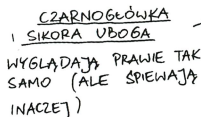 CZARNOGŁÓWKA
I SIKORA UBOGA
WYGLĄDAJĄ PRAWIE TAK
SAMO (ALE ŚPIEWAJĄ
INACZEJ)